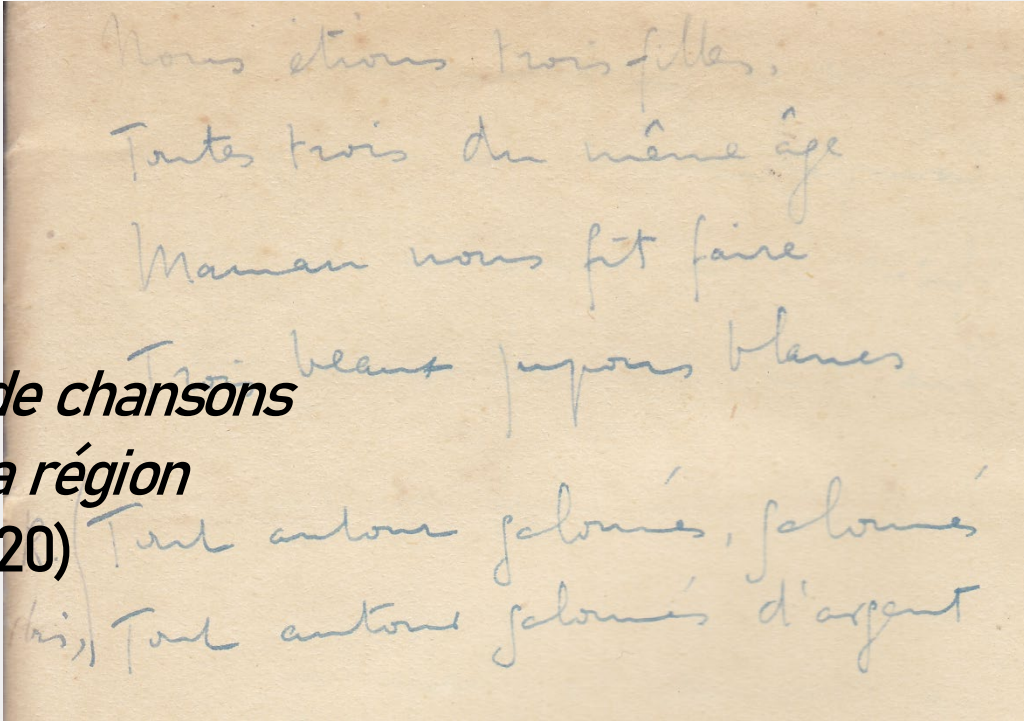 Nous étions trois filles,
Toutes trois du même âge
Maman nous fit faire
Trois beaux jupons blancs
de chansons
a région
20)
Tout autour galonnés, galonnés
bis, Tout autour galonnés d'argent